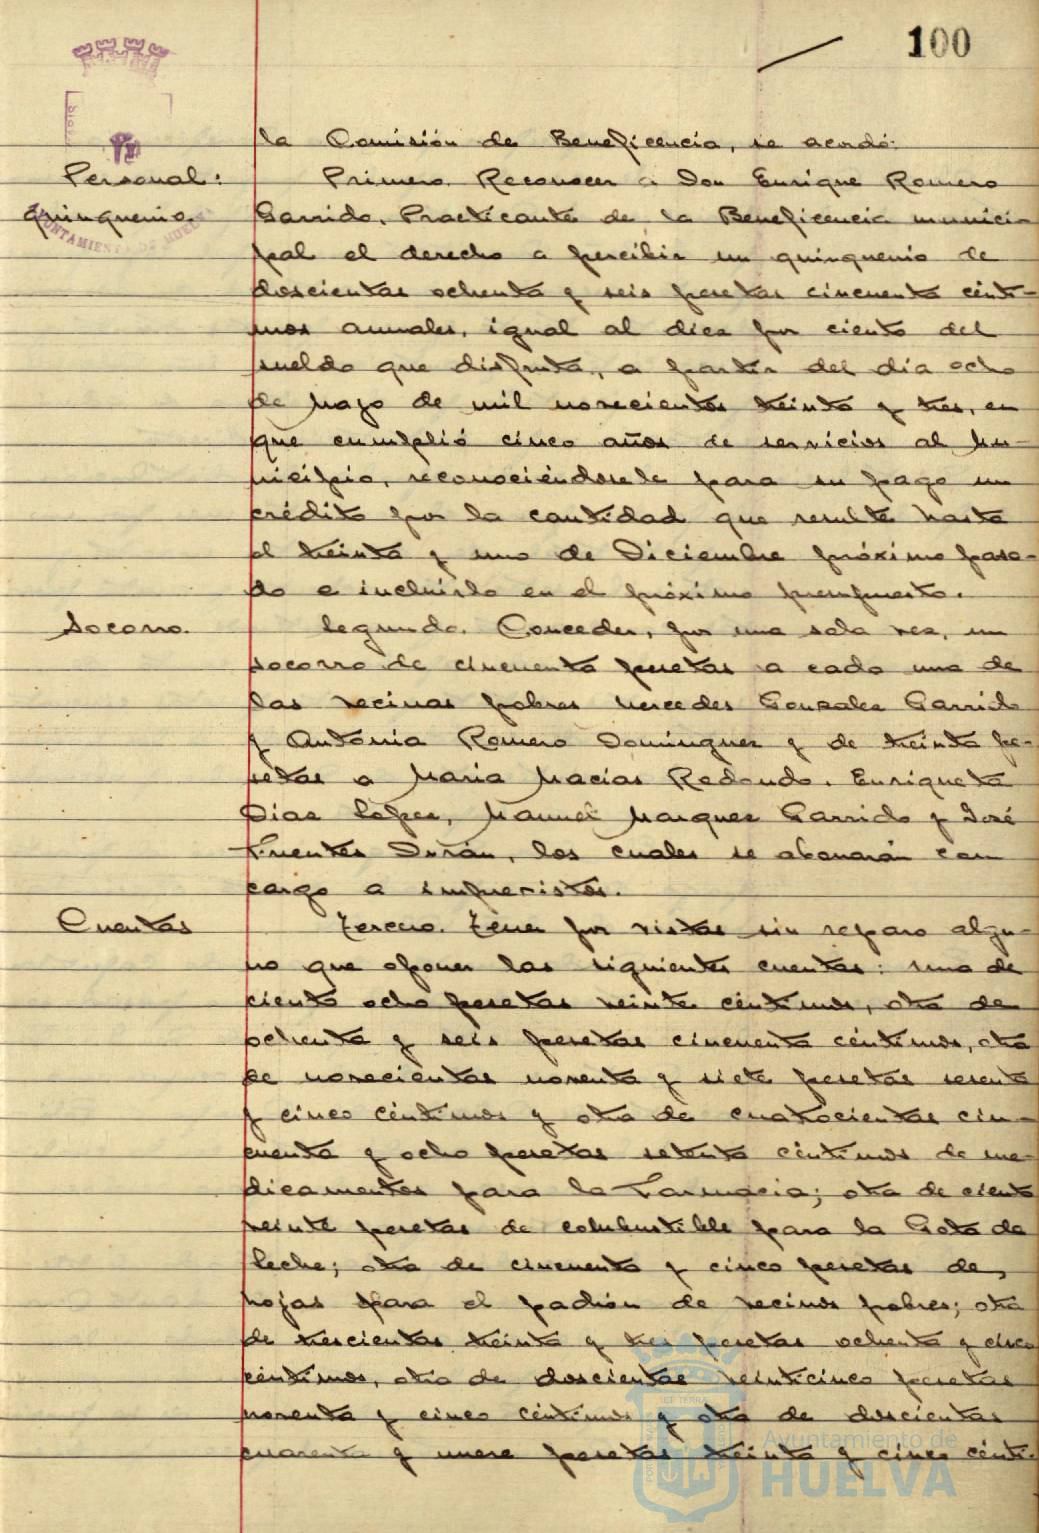 100
la Comisión de Beneficencia, se acordó:
Personal:
quinquenio.
AYUNTAMIENTO DE HUELVA
Primero. Reconocer a Don Enrique Romero
Garrido, Practicante de la Beneficencia munici-
pal el derecho a percibir un quinquenio de
doscientas ochenta y seis pesetas cincuenta cénti-
mos anuales, igual al diez por ciento del
sueldo que disfruta, a partir del día ocho
de Mayo de mil novecientos treinta y tres, en
que cumplió cinco años de servicios al Mu-
nicipio, reconociéndosele para su pago un
crédito por la cantidad que resulte hasta
el treinta y uno de Diciembre próximo pasa-
do e incluirlo en el próximo presupuesto.
Socorro.
Segundo. Conceder, por una sola vez, un
socorro de cincuenta pesetas a cada una de
las vecinas pobres Mercedes Gonzalez Garrido
y Antonia Romero Dominguez y de treinta pe-
setas a Maria Macias Redondo, Enriqueta
Diaz Lopez, Manuel Marquez Garrido y José
Fuentes Durán, los cuales se abonarán con
cargo a imprevistos.
Cuentas
Tercero. Tener por vistas sin reparo algu-
no que oponer las siguientes cuentas: una de
ciento ocho pesetas veinte céntimos, otra de
ochenta y seis pesetas cincuenta céntimos, otra
de novecientas noventa y siete pesetas sesenta
y cinco céntimos y otra de cuatrocientas cin-
cuenta y ocho pesetas setenta céntimos de me-
dicamentos para la Farmacia; otra de ciento
veinte pesetas de combustible para la Gota de
leche; otra de cincuenta y cinco pesetas de
hojas para el padrón de vecinos pobres; otra
de trescientas treinta y tres pesetas ochenta y cinco
céntimos, otra de doscientas veinticinco pesetas
noventa y cinco céntimos y otra de doscientas
cuarenta y nueve pesetas treinta y cinco cénti-
Ayuntamiento de
HUELVA